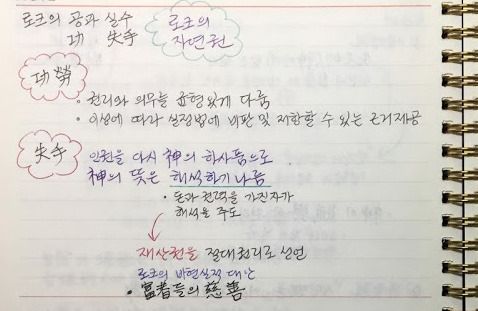 로크의 공과 실수
功 失手
로크의
자연권
功勞
• 권리와 의무를 균형있게 다룸
• 이성에 따라 실정법에 비판 및 저항할 수 있는 근거제공
失手
인권을 다시 神의 하사품으로
神의 뜻은 해석하기 나름
• 돈과 권력을 가진자가
해석을 주도
재산권을 절대권리로 선언
로크의 비현실적 대안
• 富者들의 慈善